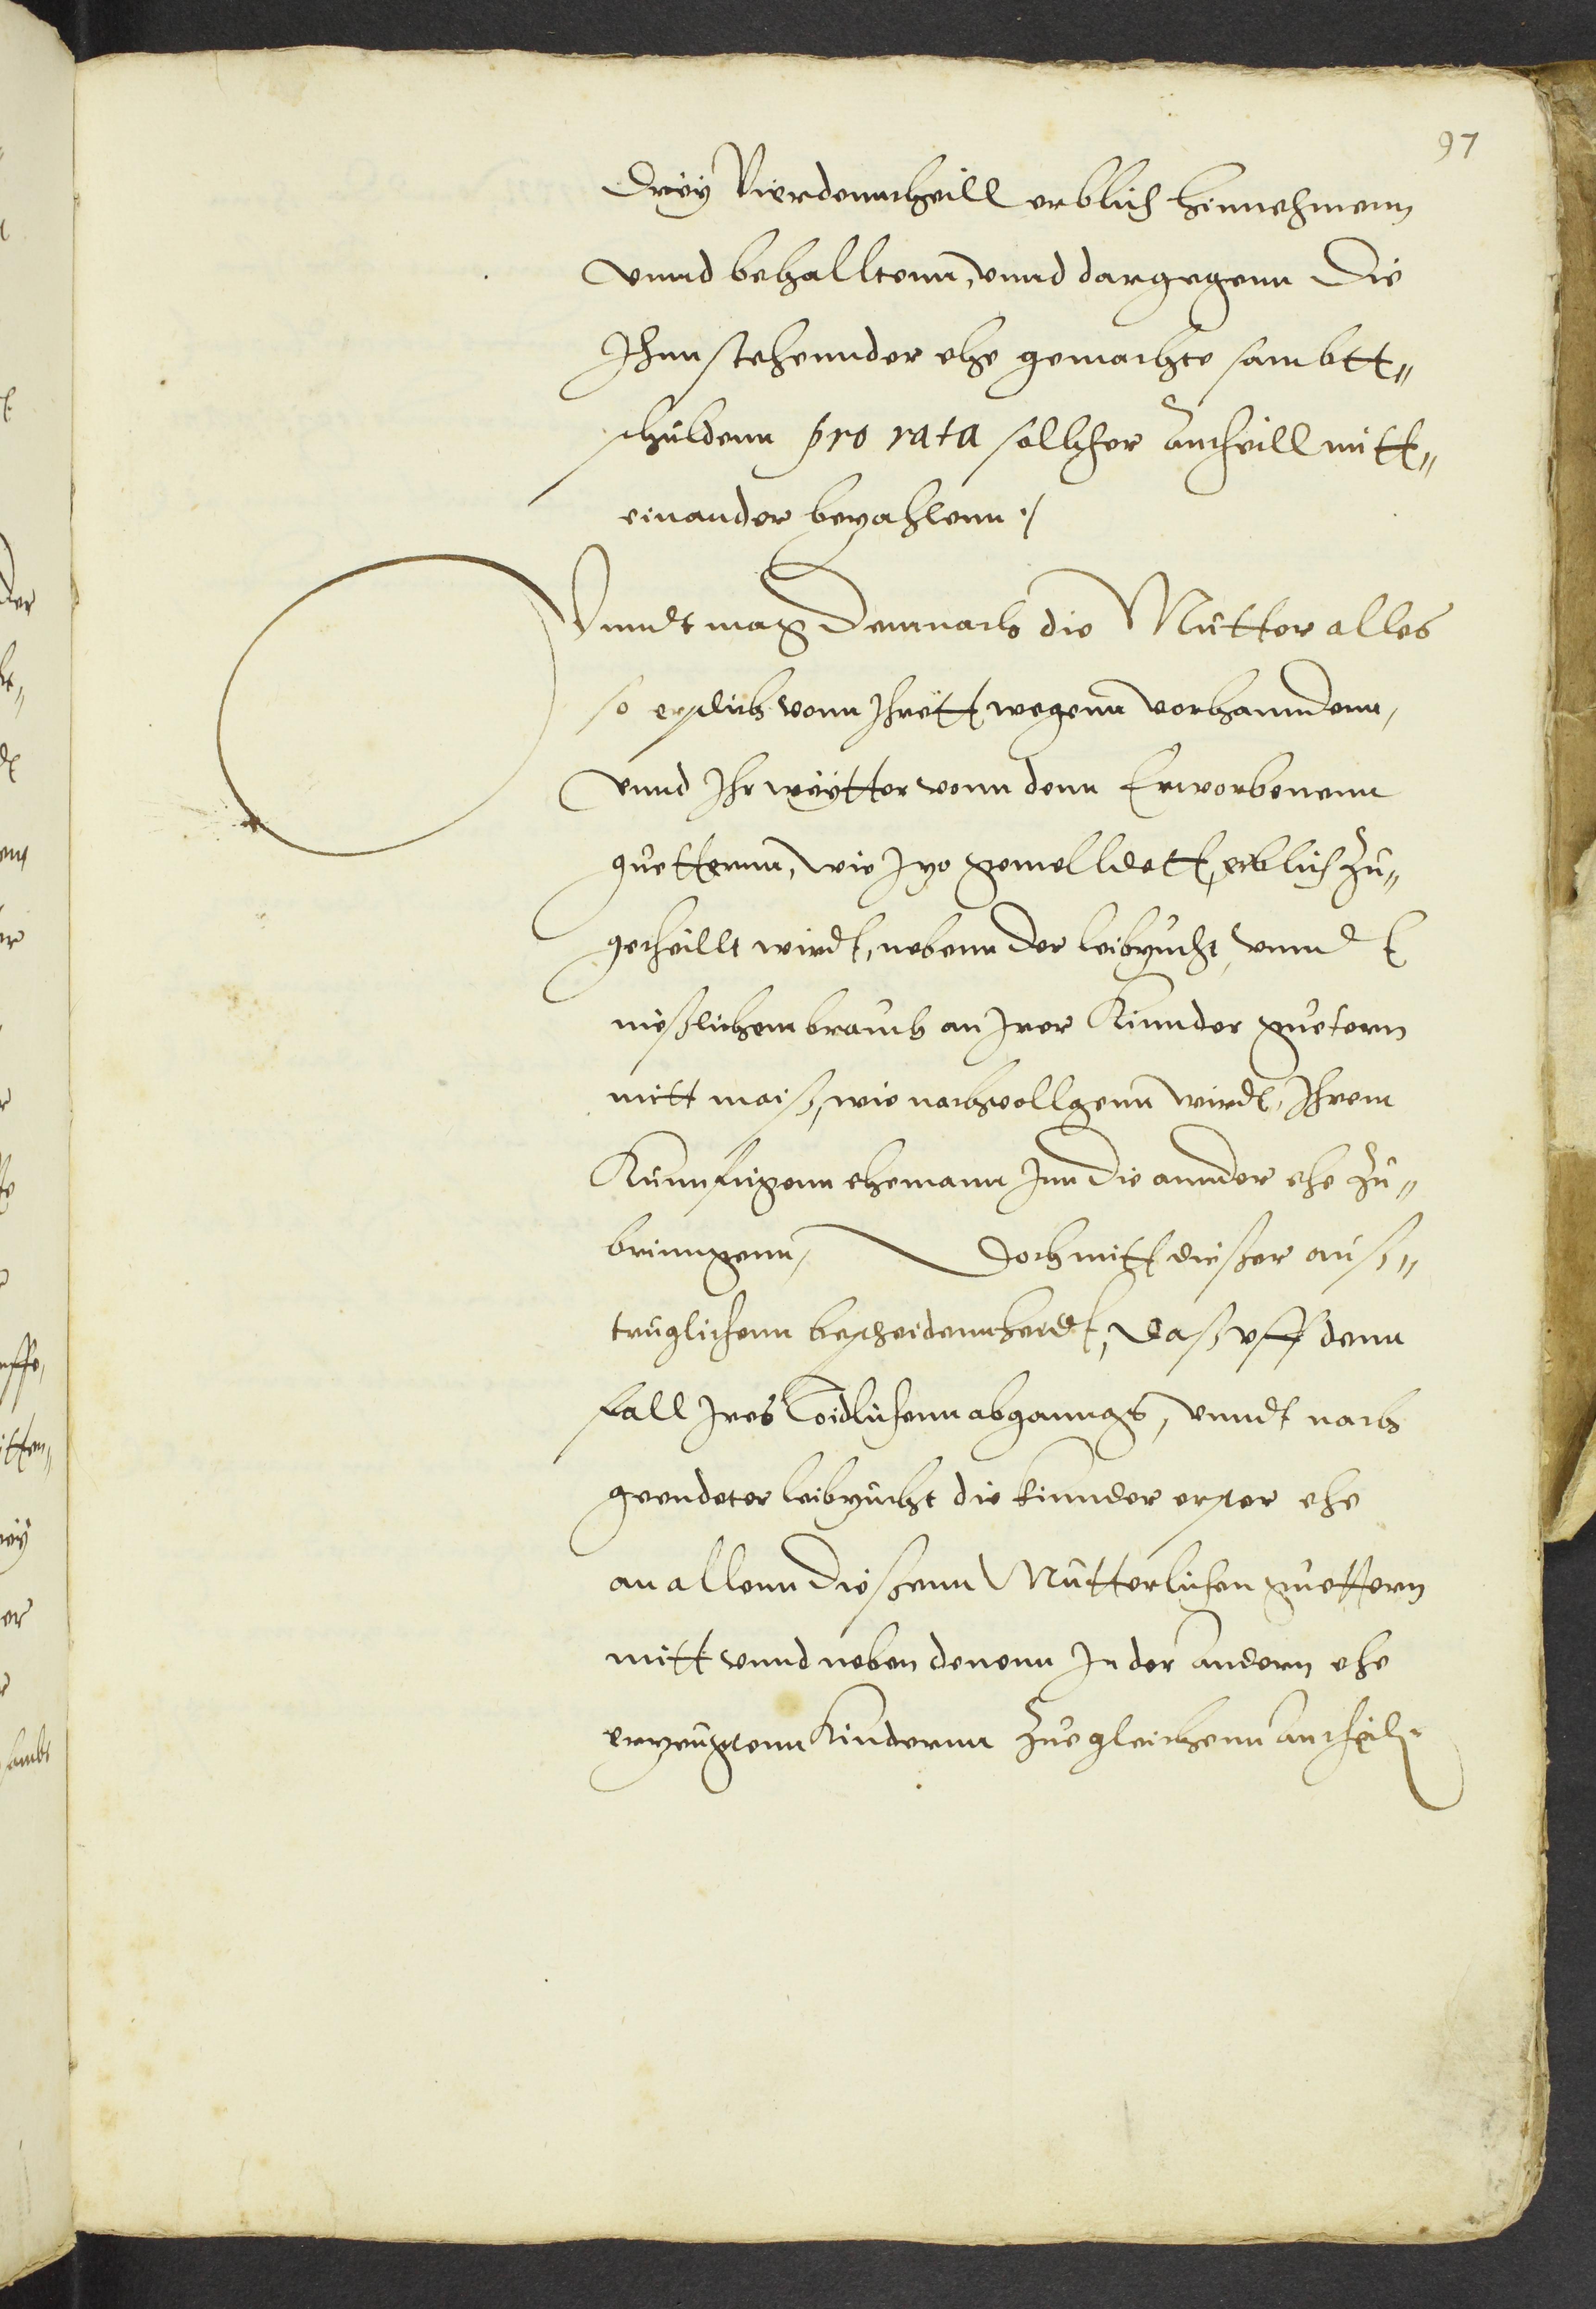 97
Dreÿ Vierdenntheill erblich hinnehmenn
vnnd behalltenn, vnnd dargegenn die
Ihnn stehennder ehe gemachte sambtt„
schuldenn pro rata sollcher Antheill mitt„
einander bezahlenn ./
Vnndt mag Demnach die Mutter alles
so erstlich vonn Ihrett wegenn vorhanndenn,
vnnd Ihr weÿtter vonn denn Erworbenenn
guetternn, wie Izo gemelldett, erblich zu„
getheillt wirdt, nebenn der leibzucht, vnndt
nießlichem brauch an Irer Kinnder guetern
mitt maiß, wie nachvollgenn wirdt, Ihrem
Kunnftigenn ehemann Inn die annder ehe zu„
brinngenn, Doch mitt dießer auß„
truglichenn bescheidennheidt, daß vff denn
fall Ires Toidlichenn abganngs, vnndt nach
geendeter leibzucht die kinnder erster ehe
an allenn dießenn Mutterlichen guettern
mitt vnnd neben denenn In der Andern ehe
erzeugtenn Kindernn Zue gleichenn Antheil